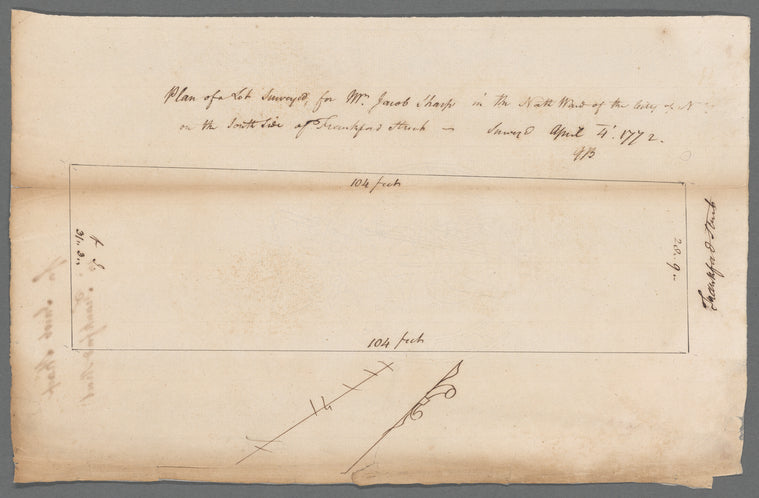 Plan of a Lot Survey'd, for Mr. Jacob Sharp in the North Ward of the City of N
on the South Side of Frankford Street — Survey'd April 4th. 1772.
GB
104 feet
31..3..
28..9..
Frankford Street
104 feet